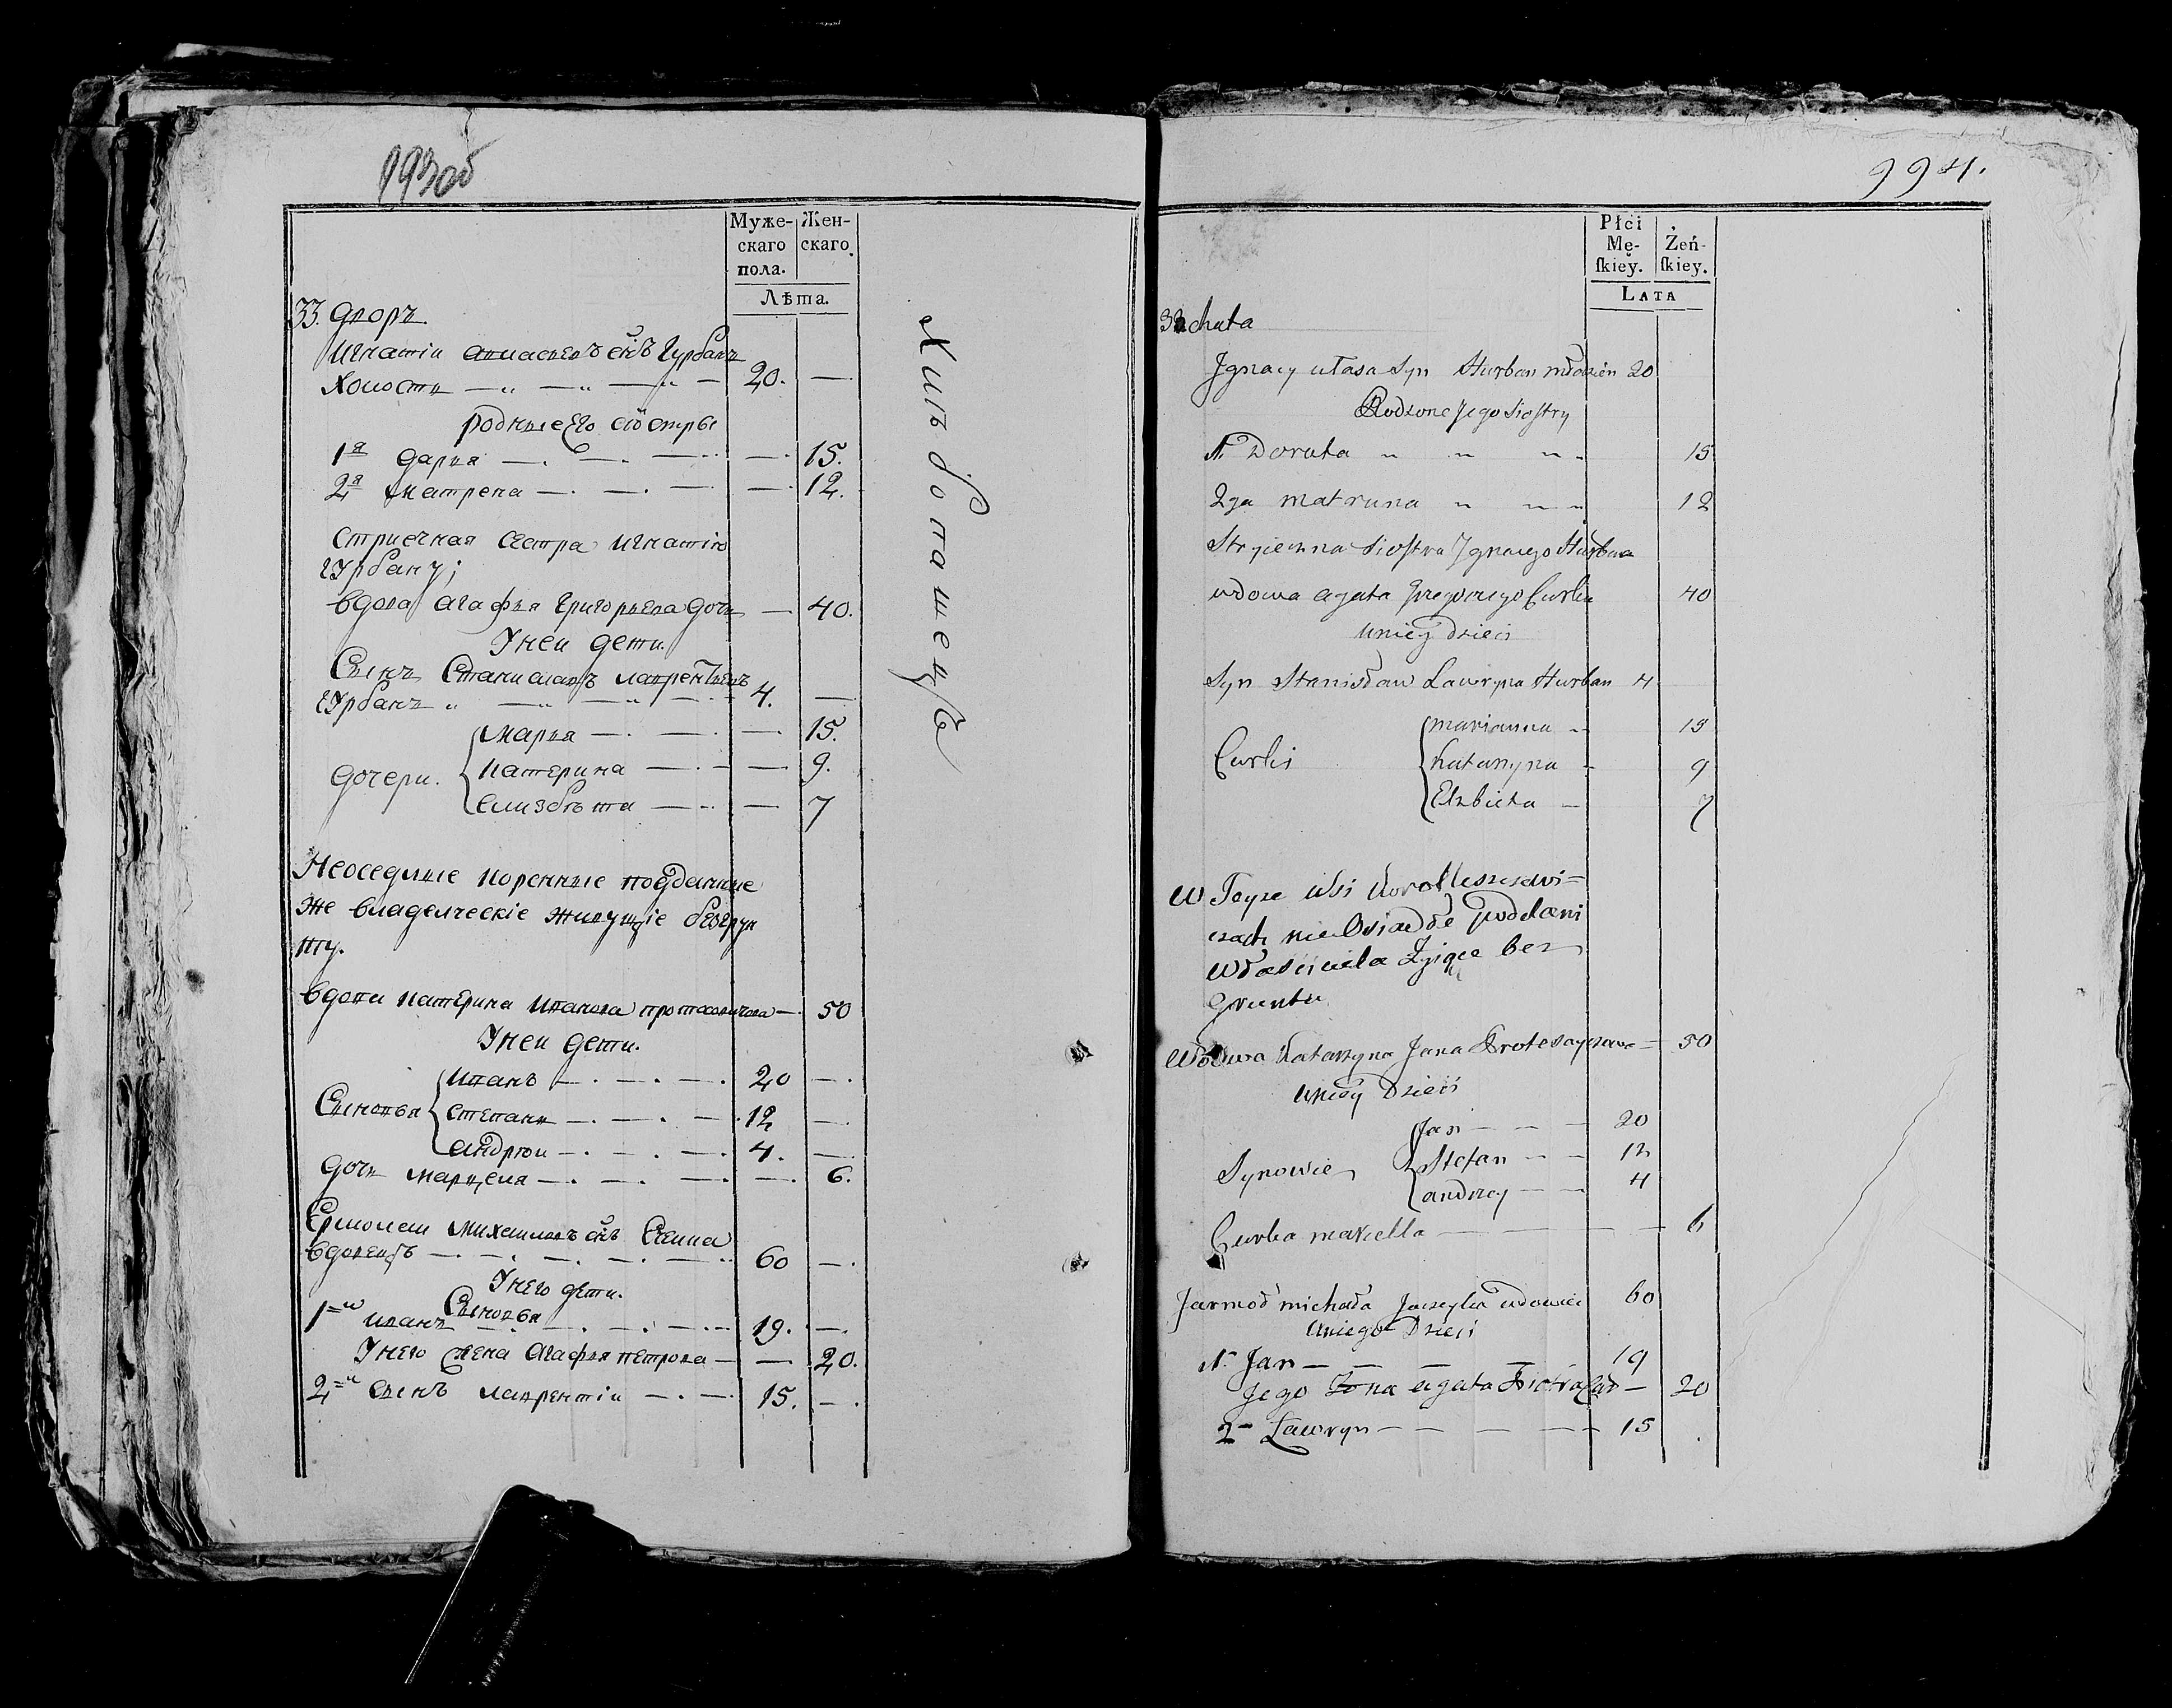 993об
Муже-
скаго
пола.
Жен-
скаго.
Лѣта.
33. Дворъ.
Игнатіи Апанасьевъ снъ Гурбанъ
Холостъ 20. —
родные Его сіостры
1я Дарья — 15.
2я Матрена — 12.
Стриечная Сестра Игнатію
Гурбану;
Вдова Агафья Григорьева дочь — 40.
У неи дети.
Сынъ Станиславъ Лаврентьевъ
Гурбанъ 4. —
Марья — 15.
Дочери. Катерина — 9.
Елизбѣта — 7
Неоседлые коренные подданные
же владелческіе живущіе безгрун
ту.
Вдова Катерина Иванова — 50
У неи дети.
Иванъ 20 —
Сыновья Степанъ 12 —
Андрюи 4. —
Дочь Марцеля — 6.
Ермолаи Михаиловъ снъ
Вдовецъ 60 —
У него дети.
Сыновья
1=и Иванъ 19. —
У него жена Агафья Петрова — 20.
2=и Сынъ Лаврентіи 15. —
994.
Płci
Mę-
skiey.
Żeń-
skiey.
LATA
33 chata
Jgnacy Syn Hurban młodzien 20
Rodzone Jego Siostry
1. Dorota 15
2ga matruna 12
Stryieczna Siostra Jgnacego Hurbana
wdowa agata Gregorego Curka 40
u niey Dzieci
Syn Stanisław Lawryna Hurban 4
marianna 15
Curki Katarzyna 9
Elzbieta 7
w Teyze wsi
czach nie Osiadłe poddani
Właściciela Żyiące bez
Gruntu
Wdowa Katarzyna Jana 50
u niey Dzieci
Jan 20
Synowie Stefan 12
andrzey 4
Curka marcella 6
Jarmoł michała wdowiec 60
u niego Dzieci
1. Jan 19
Jego Zona agata Piotra Cur 20
2 Lawryn 15